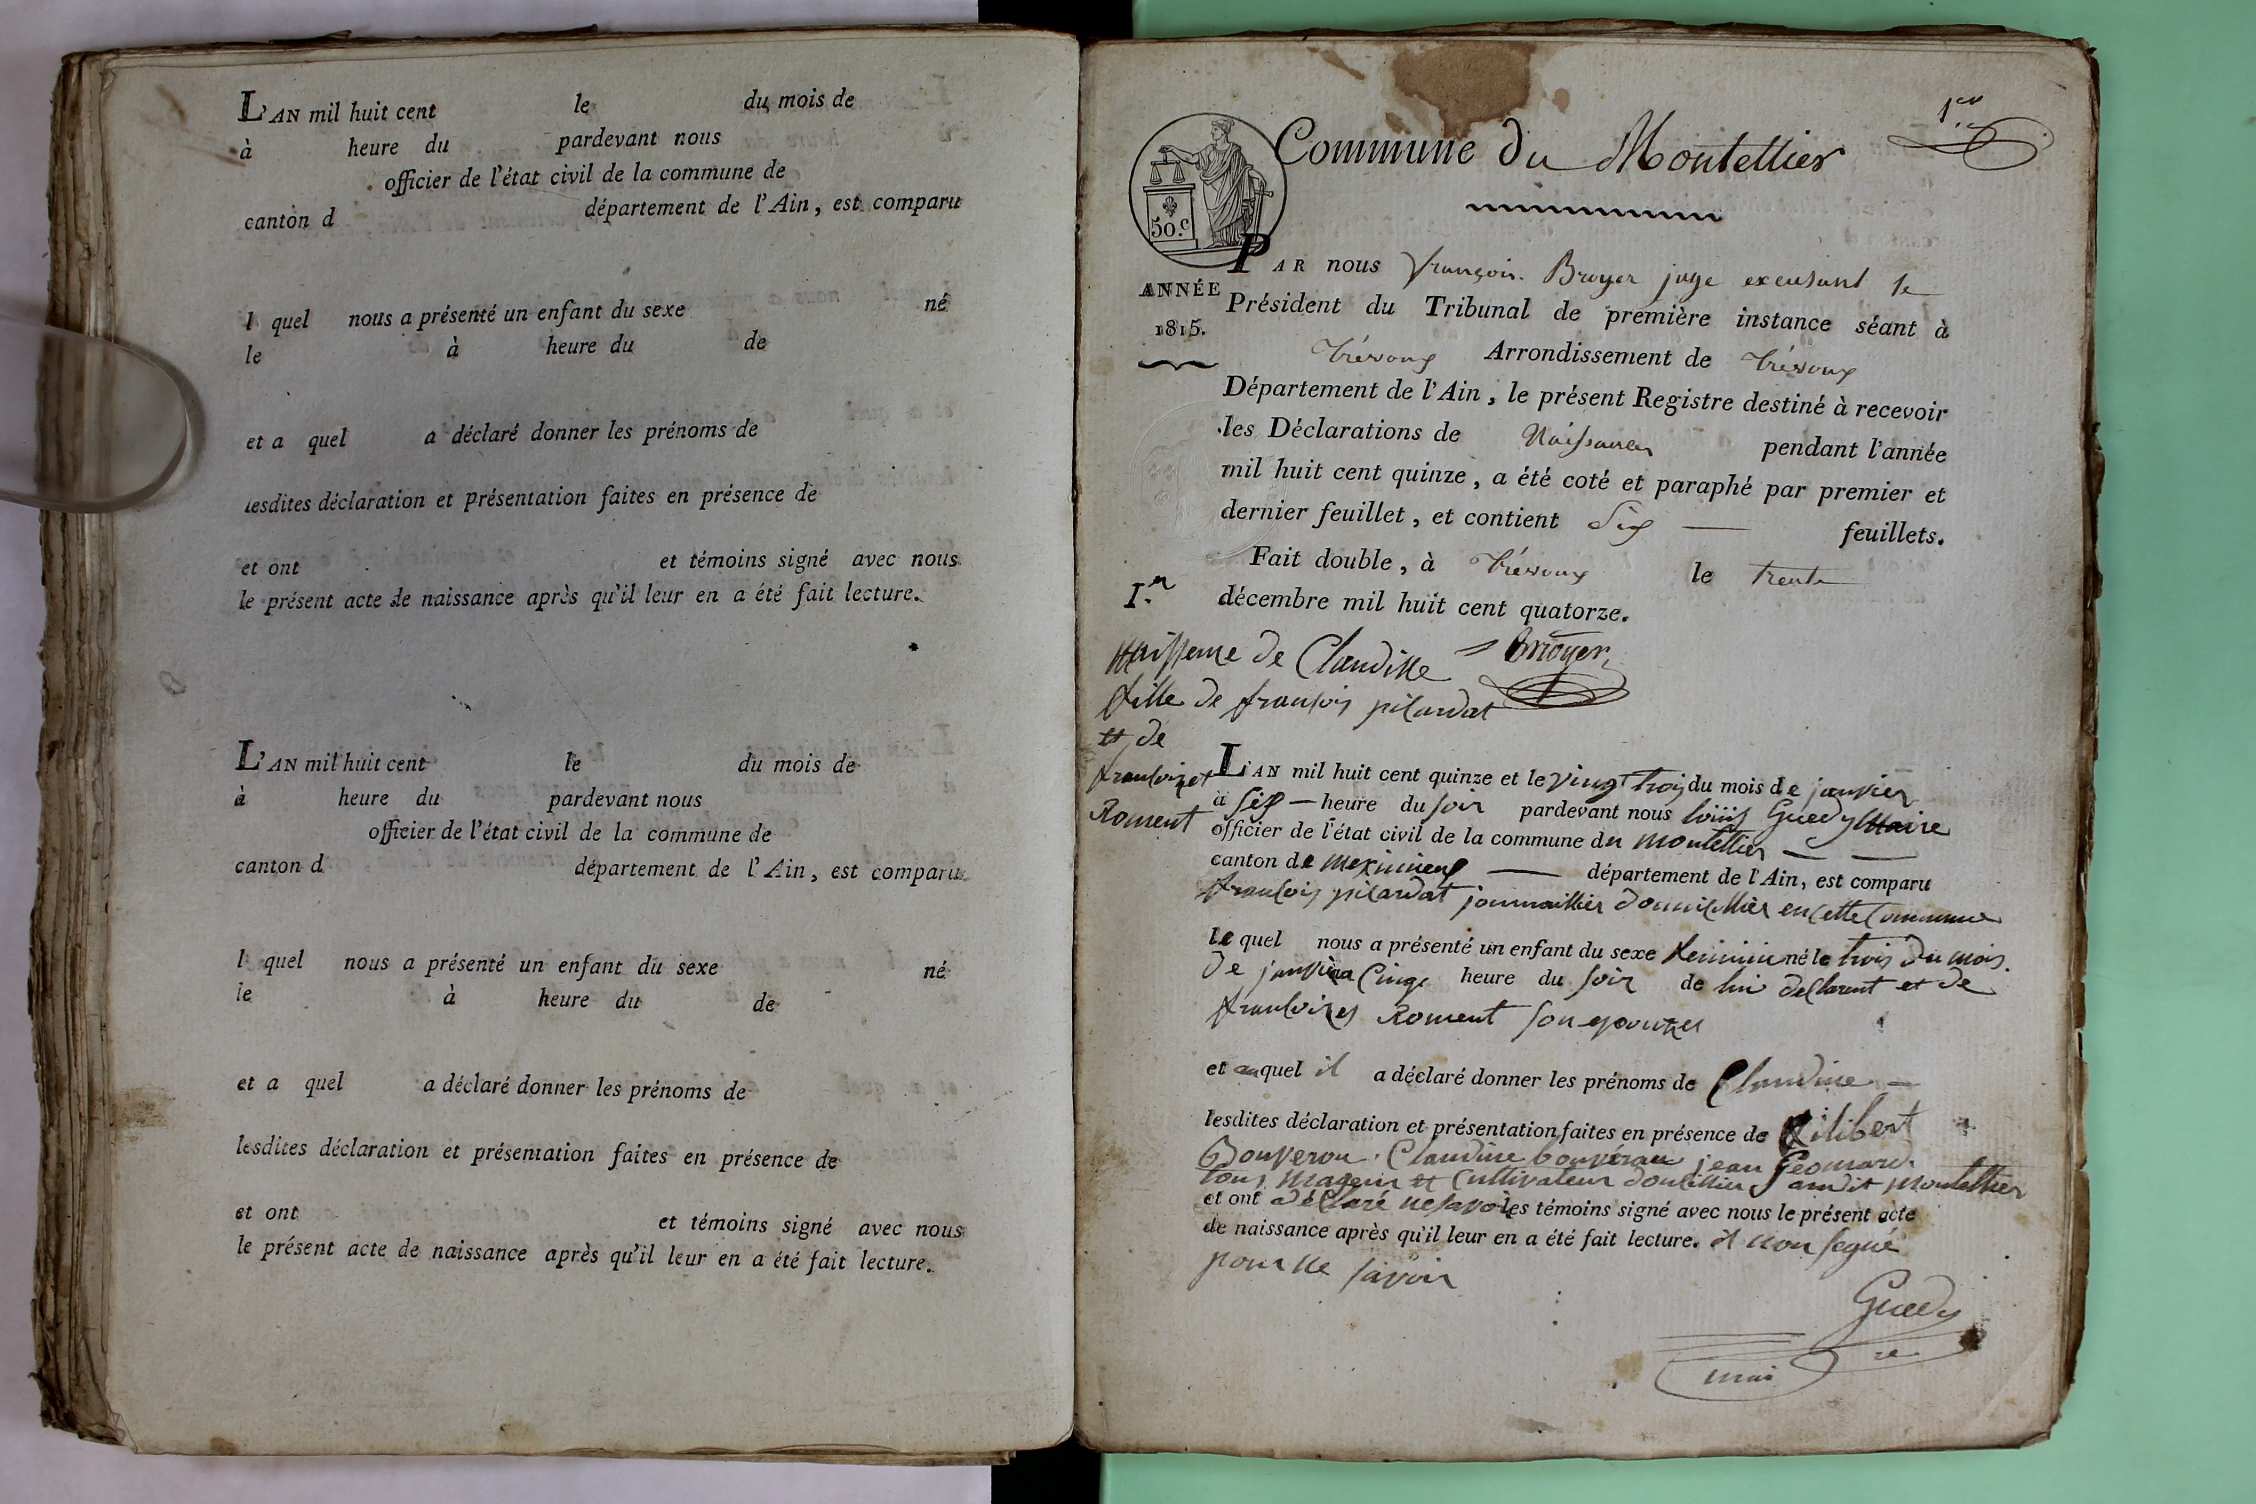 L'AN mil huit cent le du mois de
à heure du pardevant nous
officier de l'état civil de la commune de
canton d département de l'Ain, est comparu
l quel nous a présenté un enfant du sexe né
le à heure du de
et a quel a déclaré donner les prénoms de
lesdites déclaration et présentation faites en présence de
et ont et témoins signé avec nous
le présent acte de naissance après qu'il leur en a été fait lecture.
L'AN mil huit cent le du mois de
à heure du pardevant nous
officier de l'état civil de la commune de
canton d département de l'Ain, est comparu
l quel nous a présenté un enfant du sexe né
le à heure du de
et a quel a déclaré donner les prénoms de
lesdites déclaration et présentation faites en présence de
et ont et témoins signé avec nous
le présent acte de naissance après qu'il leur en a été fait lecture.
1er
Commune du Montellier
50.c
ANNÉE
1815.
PAR nous françois Broyer juge excusant le
Président du Tribunal de première instance séant à
Trévoux Arrondissement de Trévoux
Département de l'Ain, le présent Registre destiné à recevoir
les Déclarations de Naissances pendant l'année
mil huit cent quinze, a été coté et paraphé par premier et
dernier feuillet, et contient Six feuillets.
Fait double, à Trévoux le trente
décembre mil huit cent quatorze.
Broyer
I.er
Naissence de Claudine
fille de francois pilardat
et de
francoizes
Roment
L'AN mil huit cent quinze et le vingt trois du mois de janvier
à six heure du soir pardevant nous louis Guedy Maire
officier de l'état civil de la commune du montellier
canton de meximieux département de l'Ain, est comparu
francois pilardat journaillier domicillier en cette Commune
le quel nous a présenté un enfant du sexe feminin né le trois du mois
de janvier a Cinqe heure du soir de lui declarent et de
francoizes Roment son epouzes
et auquel il a déclaré donner les prénoms de Claudine
lesdites déclaration et présentation faites en présence de filibert
Bouveron Claudine bouveron jean Geomard
tous mageur et Cultivateur domicillier audit montellier
et ont adéClaré ne savoir les témoins signé avec nous le présent acte
de naissance après qu'il leur en a été fait lecture. et non segné
pour ne savoir
Guedy
maire